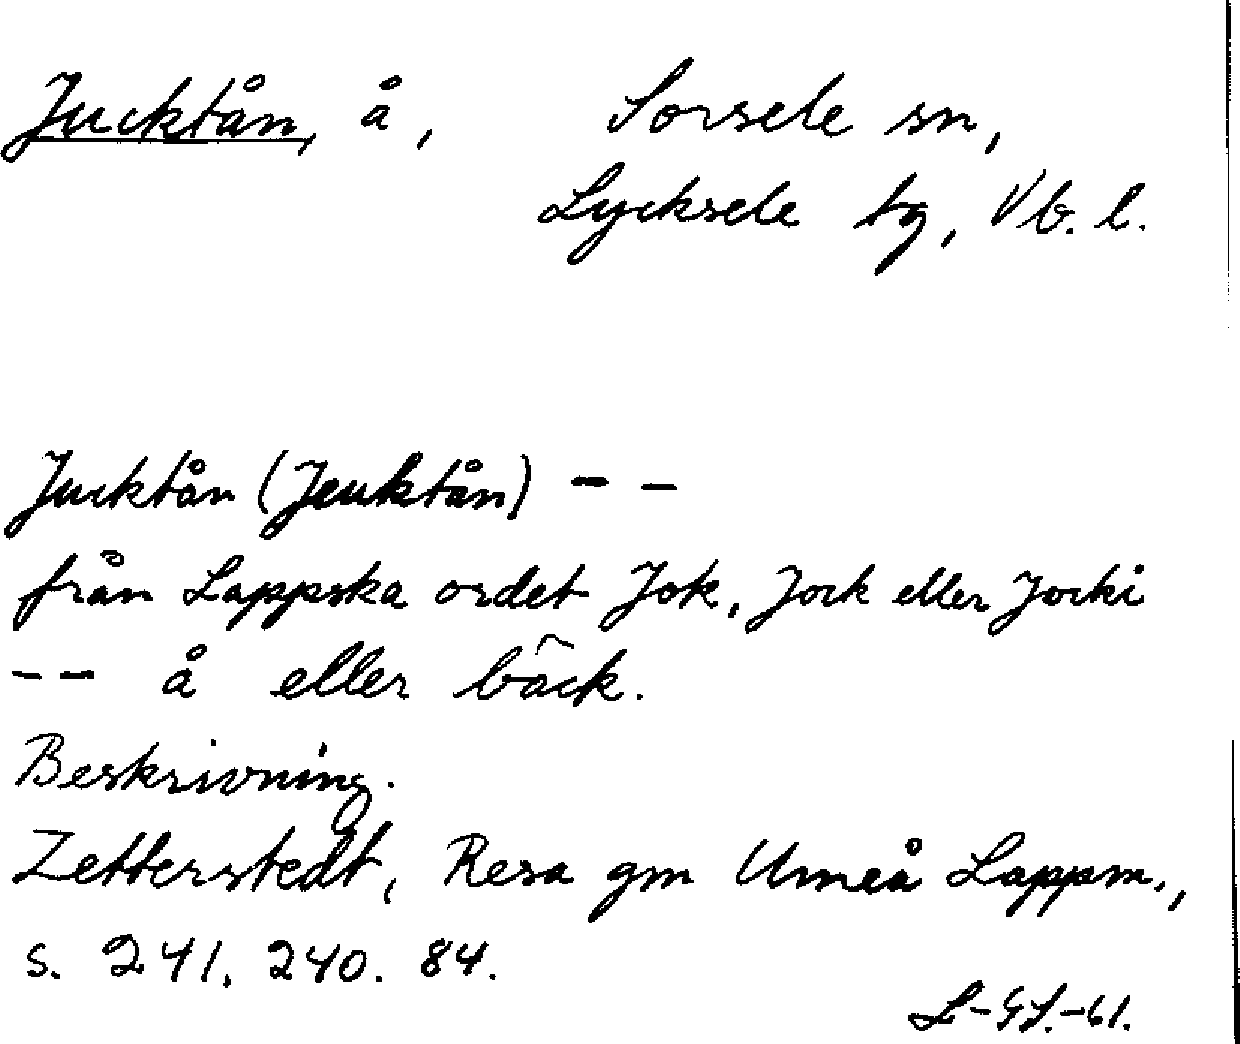 Jucktån, å, Sorsele sn,
Lycksele tg, Vb. l.
Jucktån (Jeuktån) - -
från Lappska ordet Jok, Jock eller Jocki
-- å eller bäck.
Beskrivning.
Zetterstedt, Resa gm Umeå Lappm.,
s. 241. 240. 84.